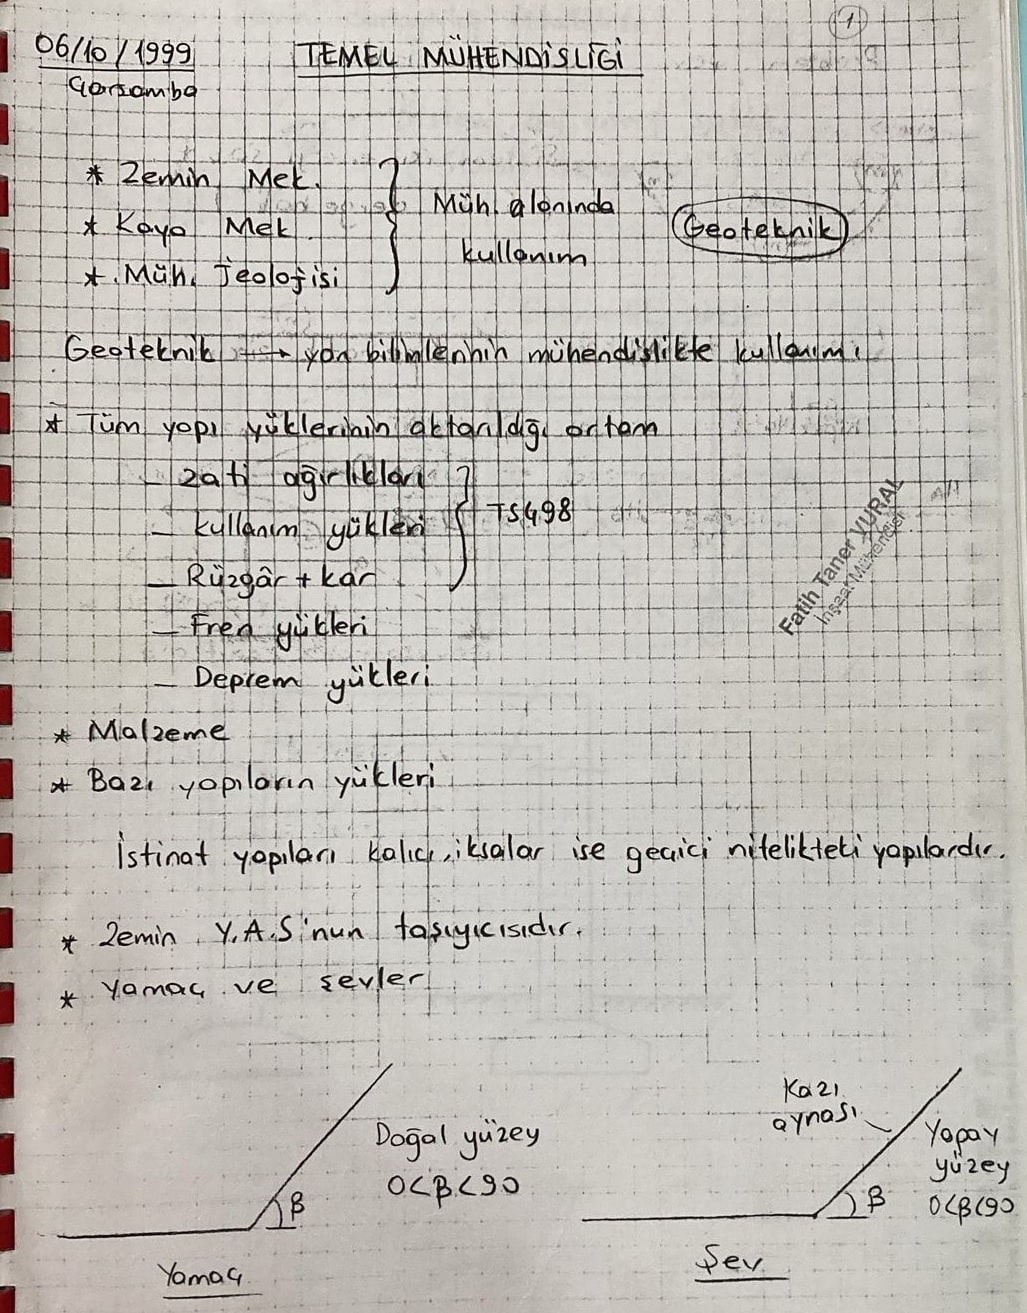 1
06/10/1999
TEMEL MÜHENDİSLİĞİ
Çarşamba
* Zemin Mek.
* Kaya Mek.
* Müh. Jeolojisi
Müh. alanında
kullanım
Geoteknik
Geoteknik → yan bilimlerinin mühendislikte kullanımı
* Tüm yapı yüklerinin aktarıldığı ortam
- zati ağırlıkları
- kullanım yükleri
- Rüzgâr + kar
TS498
- Fren yükleri
- Deprem yükleri
Fatih Taner VURAL
İnşaat Mühendisi
* Malzeme
* Bazı yapıların yükleri
İstinat yapıları kalıcı, iksalar ise geçici nitelikteki yapılardır.
* Zemin Y.A.S'nun taşıyıcısıdır.
* Yamaç ve şevler
Doğal yüzey
0<β<90
β
Yamaç
Kazı
aynası
Yapay
yüzey
0<β<90
β
Şev